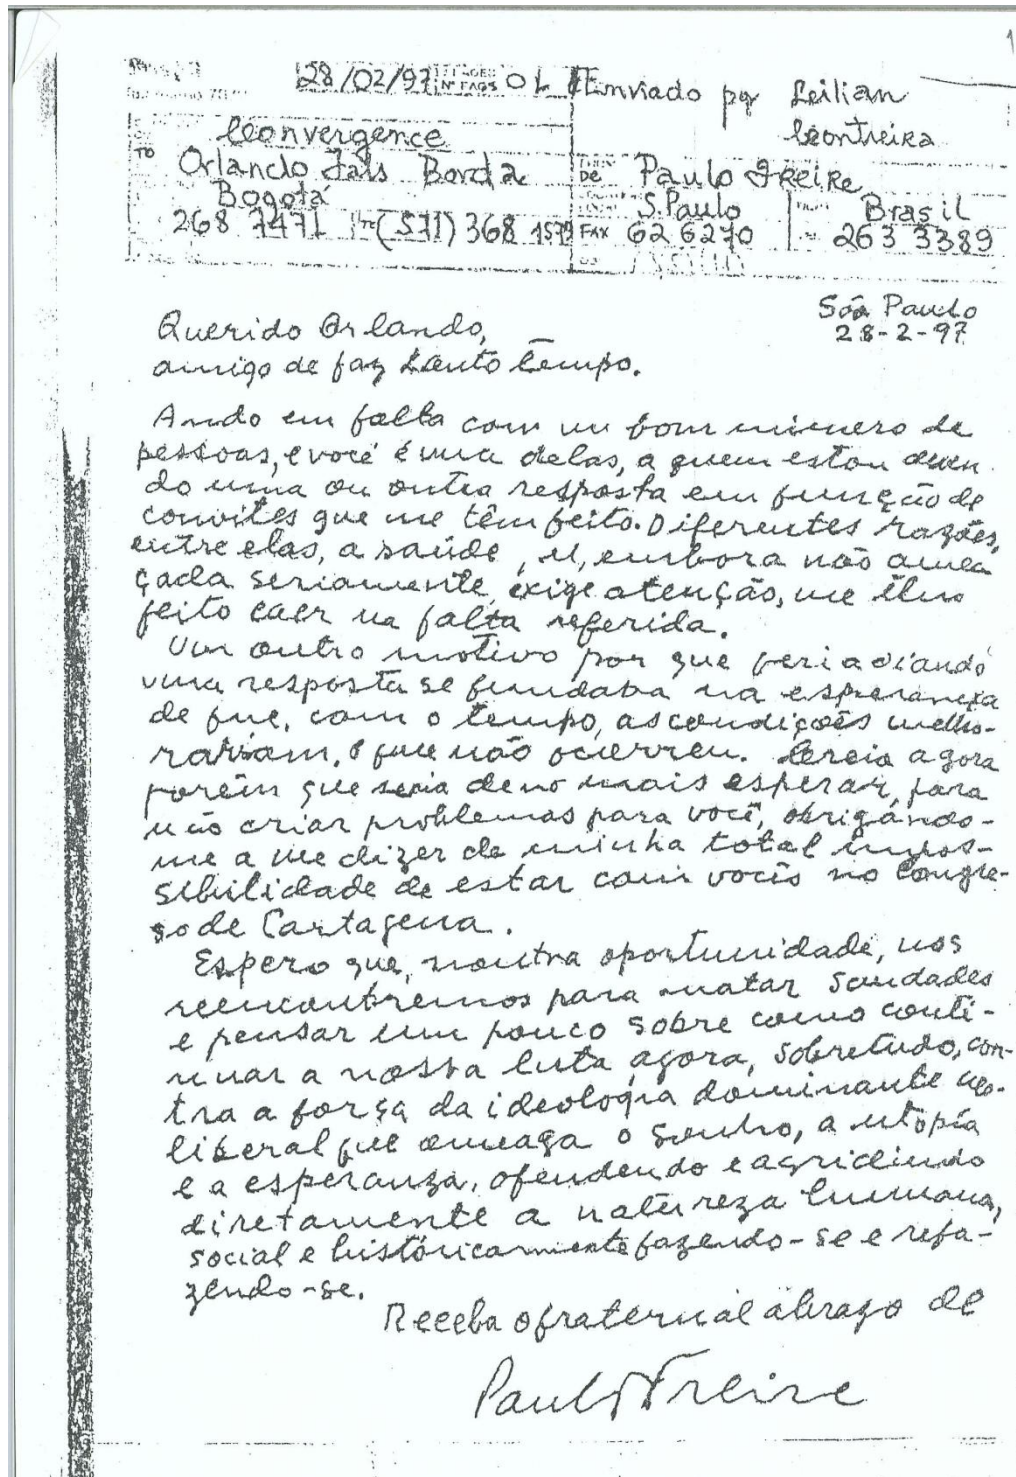 1
28/02/97 PAGES Nº PAGS 01 Enviado por Leilian
Contreira
Convergence
TO Orlando Fals Borda
DE Paulo Freire
Bogotá
S. Paulo Brasil
268 7471 (571) 368 1579 FAX 62 6270 263 3389
São Paulo
28-2-97
Querido Orlando,
amigo de faz tanto tempo.
Ando em falta com um bom número de
pessoas, e você é uma delas, a quem estou deven
do uma ou outra resposta em função de
convites que me têm feito. Diferentes razões,
entre elas, a saúde, embora não amea
çada seriamente, exige atenção, me têm
feito caer na falta referida.
Um outro motivo por que vem adiando
uma resposta se fundaba na esperanza
de que, com o tempo, as condições melho-
rariam, o que não ocurreu. Creio agora
porém que seria demais esperar, para
não criar problemas para você, obrigándo-
me a me dizer de minha total impos-
sibilidade de estar com vocês no Congre-
so de Cartagena.
Espero que, noutra oportunidade, nos
reencontremos para matar saudades
e pensar um pouco sobre como conti-
nuar a nossa luta, agora, sobretudo, con-
tra a força da ideologia dominante neo-
liberal que ameaça o sonho, a utopía
e a esperanza, ofendendo e agridindo
diretamente a natureza humana,
social e históricamente fazendo-se e refa-
zendo-se.
Receba o fraternal abrazo de
Paulo Freire